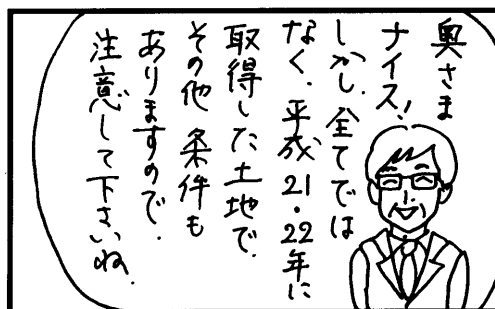 奥さま
ナイス！
しかし、全てでは
なく、平成21・22年に
取得した土地で、
その他 条件も
ありますので、
注意して下さいね。